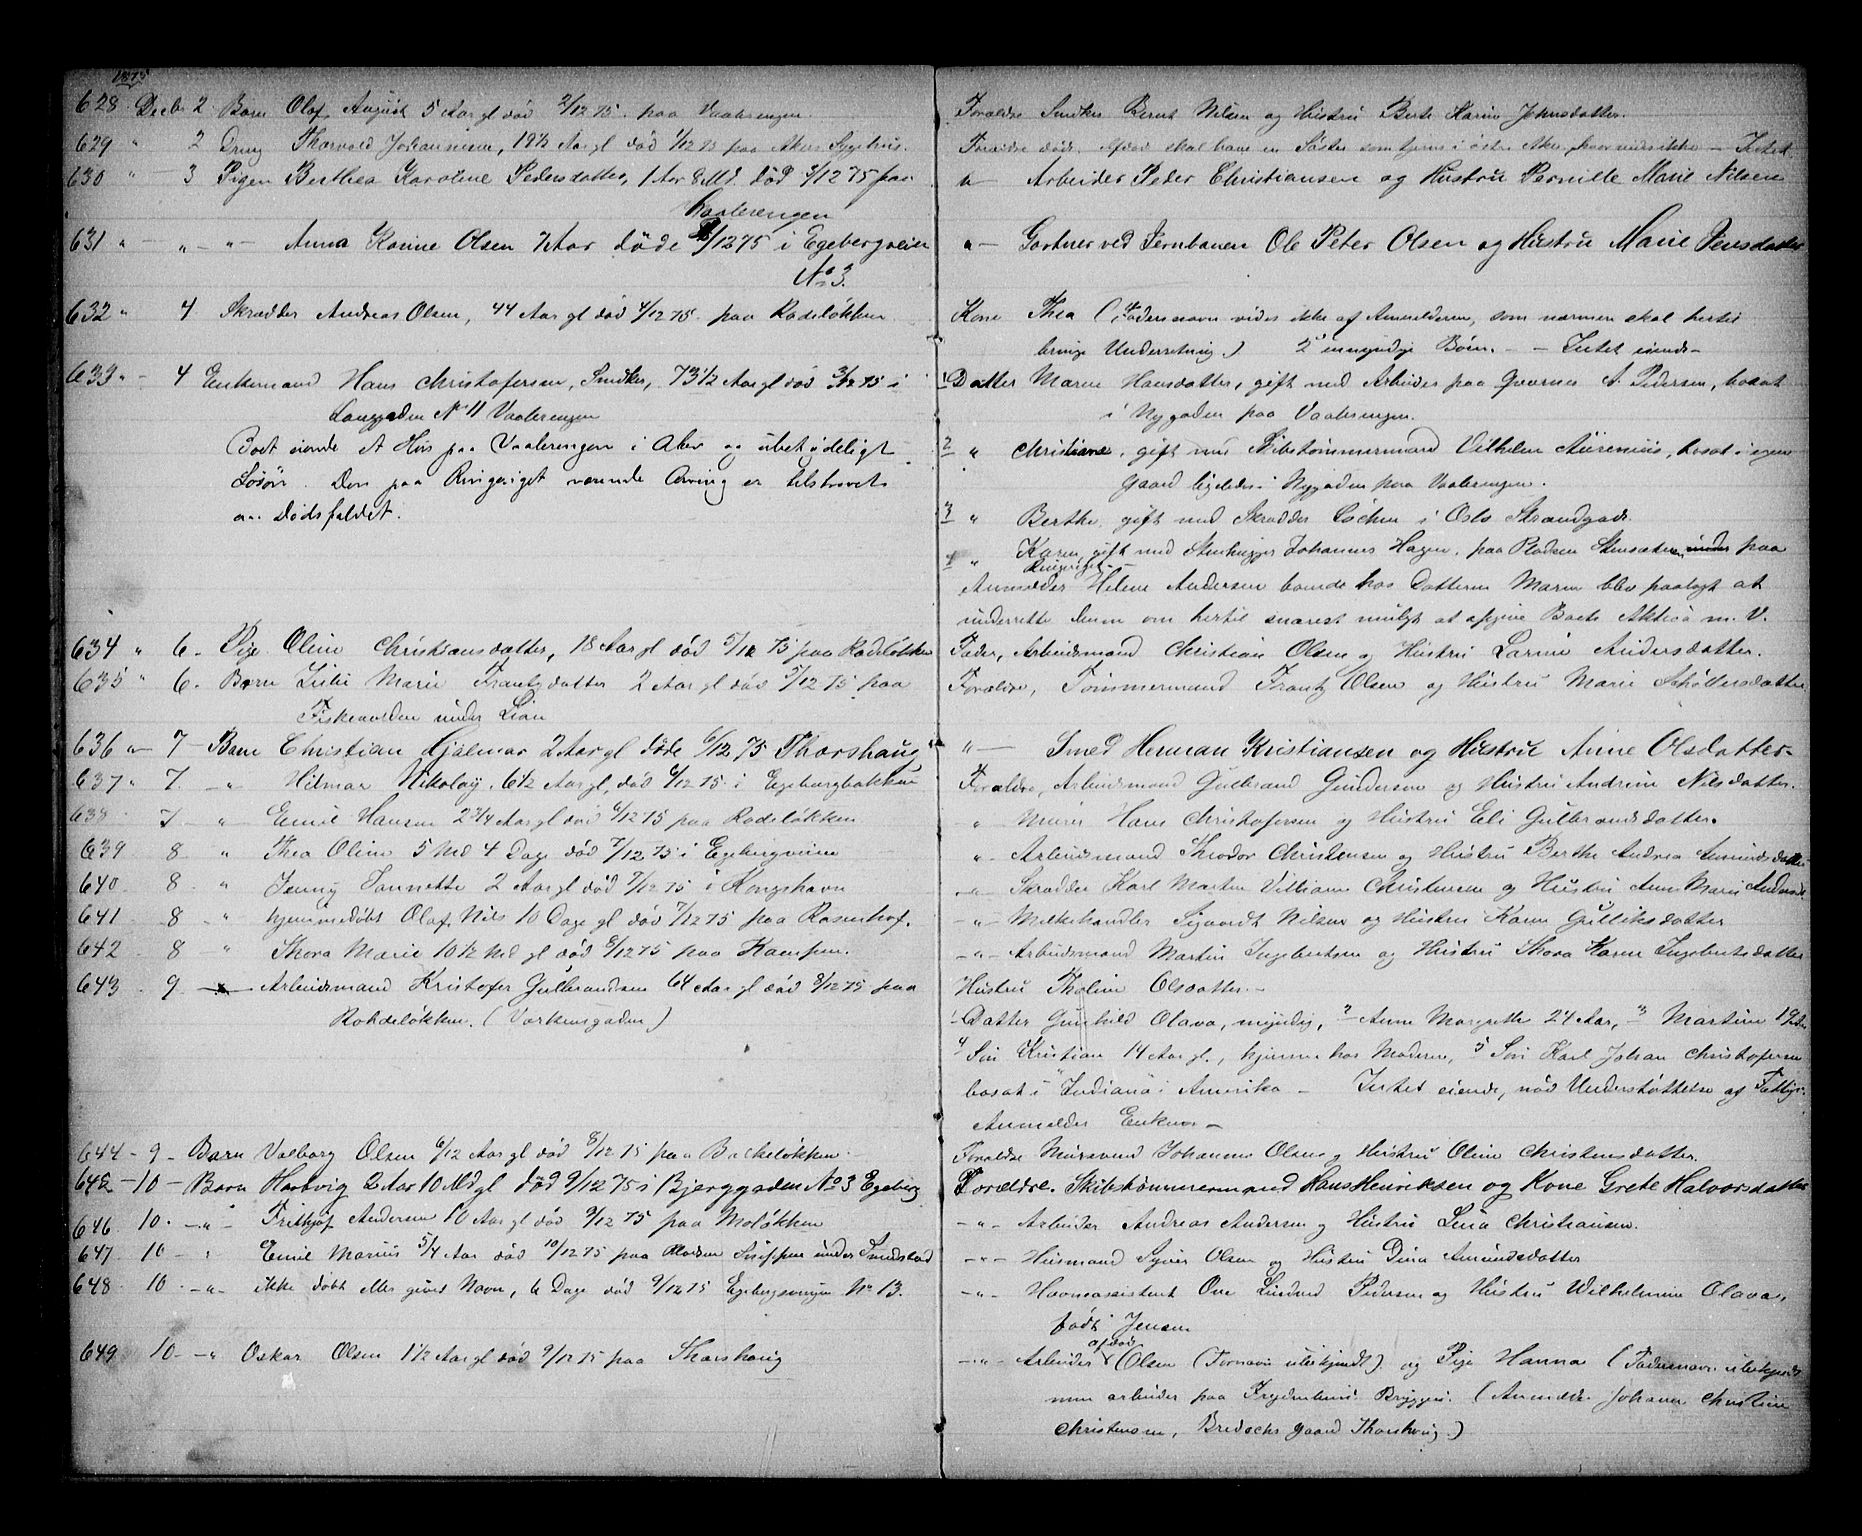 1875
628 Decbr 2 Barn Olaf August 5 Aar gl død 2/12 75 paa Vaalerengen
Forældre Snedker Bernt Nilsen og Hustru Berte Karine Johnsdatter.
629 " 2 Dreng Thorvald Johannesen, 19½ Aar gl død 1/12 75 paa Akers Sygehus.
Forældre døde. Afdøde skal have en Søster som tjener i østre Aker, hvor vides ikke — Intet
630 " — 3 Pigen Berthea Karoline Pedersdatter, 1 Aar 8 Md. død 3/12 75 paa
Vaalerengen
" — Arbeider Peder Christiansen og Hustru Pernille Marie Nilsen
631 " — " — " — Anna Karine Olsen 7 Aar døde /12 75 i Egebergveien
No 3.
" — Gartner ved Jernbanen Ole Peter Olsen og Hustru Marie Jensdatter
632 " 4 Skrædder Andreas Olsen, 44 Aar gl død 4/12 75 paa Rodeløkken
Kone Thea (Fadersnavn vides ikke af Anmelderen, som nærmere skal hertil
bringe Underretning.) 2 umyndige Børn. — Intet eiende —
633 " — 4 Enkemand Hans Christofersen, Snedker, 73½ Aar gl død 3/12 75 i
Langgaden No 11 Vaalerengen
Boet eiende et Hus paa Vaalerengen i Aker og ubetydeligt
Løsøre. Den paa Ringeriget værende Arving er tilskrevet
om Dødsfaldet.
1 Datter Maren Hansdatter, gift med Arbeider paa A. Pedersen, bosat
i Nygaden paa Vaalerengen.
2 " Christiane, gift med Skibstømmermand Vilhelm Aurenius, bosat i egen
Gaard ligeledes i Nygaden paa Vaalerengen.
3 " Berthe, gift med Skrædder Løchen i Oslo Strandgade.
4 " Karen, gift med Stenhugger Johannes Hagen, paa Pladsen under paa
Ringeriget —
Anmelder Helene Andersen boende hos Datteren Maren blev paalagt at
underrette denne om hertil snarest muligt at opgive Boets Aktiva m. V.
634 " 6. Pige Oline Christiansdatter, 18 Aar gl død 5/12 75 paa Rodeløkken
Fader, Arbeidsmand Christian Olsen og Hustru Larine Andersdatter.
635 " 6. Barn Julie Marie Frantzdatter 2 Aar gl død 5/12 75 paa
Fiskevorden under Lian
Forældre, Tømmermand Frantz Olsen og Hustru Marie
636 " — 7 — Barn Christian Hjalmar 2 Aar gl døde 6/12 75 Thorshaug
" — Smed Herman Kristiansen og Hustru Anne Olsdatter —
637 " 7. — " Hilmar Nikolay. 6½ Aar gl, død 6/12 75 i Egebergbakken
Forældre, Arbeidsmand Gulbrand Gundersen og Hustru Andrine Nilsdatter.
638 7 — " Emil Hansen 2¾ Aar gl død 6/12 75 paa Rodeløkken
" Murer Hans Christofersen og Hustru Eli Gulbrandsdatter.
639 8 " Thea Oline 5 Md 4 Dage død 7/12 75 i Egebergveien
" Arbeidsmand Theodor Christensen og Hustru Berthe Andrea Amundsdatter
640 8 " Jenny Jannette 2 Aar gl død 7/12 75 i Kongshavn
— " — Skrædder Karl Martin Villiam Christensen og Hustru Anne Marie
641 8 — " hjemmedøbt Olaf Nils 10 Dage gl død 7/12 75 paa Rosenhof.
— " — Melkehandler Sigvardt Nilsen og Hustru Karen Gulliksdatter
642 8 " Thora Marie 10½ Md gl død 8/12 75 paa Kampen.
— " — Arbeidsmand Martin Ingebretsen og Hustru Thora Karen Ingebretsdatter
643 9 — Arbeidsmand Kristofer Gulbrandsen 64 Aar gl død 8/12 75 paa
Rohdeløkken. (Verksgaden)
Hustru Tholine Olsdatter. —
1 Datter Gunhild Olava, myndig, 2 Anne Margrethe 24 Aar, 3 Martine 19
4 Søn Kristian 14 Aar gl., hjemme hos Moderen, 5 Søn Karl Johan Christofersen
bosat i "Indiana" i Amerika — Intet eiende, nød Understøttelse af
Anmelder Enken —
644 — 9 — Barn Valborg Olsen 6/12 Aar gl død 8/12 75 paa Bakkeløkken
Forældre Murersvend Johannes Olsen og Hustru Oline Christensdatter.
645 — 10 — Barn Hartvig 2 Aar 10 Md gl død 9/12 75 i Bjerggaden No 3 Egeberg
Forældre. Skibstømmermand Hans Henriksen og Kone Grete Halvorsdatter
646 10. — " — Frithjof Andersen 10 Aar gl død 9/12 75 paa Moløkken
— " — Arbeider Andreas Andersen og Hustru Lina Christiansen.
647 10 — " Emil Marius 5/4 Aar død 10/12 75 paa Pladsen under Smedstad
— " — Husmand Syver Olsen og Hustru Dina Amundsdatter
648 10 — " — ikke døbt eller givet Navn, 6 Dage død 9/12 75 Egebergveien No 13.
— " — Havneassistent Ove Pedersen og Hustru Wilhelmine Olava,
født Jensen
649 10 — — " Oskar Olsen 1½ Aar gl død 9/12 75 paa Thorshaug
— " — Arbeider afdøde Olsen (Fornavn ubekjendt) og Pige Hanna (Fadersnavn ubekjendt
men arbeider paa Frydenlunds Bryggeri. (Anmeldt. Johanne Christine
Christensen, Gaard Thorshaug.)